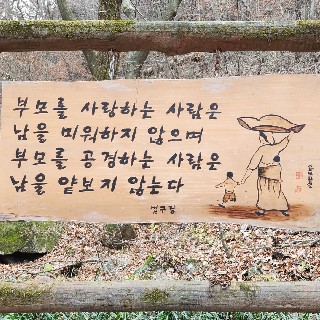 부모를 사랑하는 사람은
남을 미워하지 않으며
부모를 공경하는 사람은
남을 얕보지 않는다